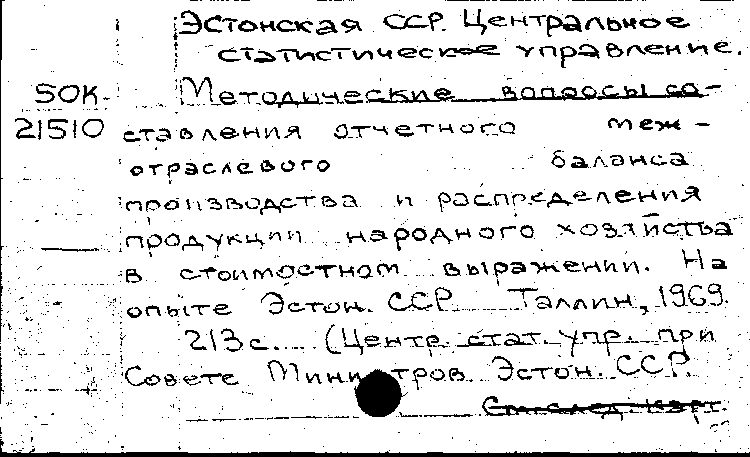 Эстонская ССР. Центральное
статистическое управление.
50К-
Методические вопросы со-
21510
ставления отчетного меж-
отраслевого баланса
производства и распределения
продукции народного хозяйства
в стоимостном выражении. На
опыте Эстон. ССР Таллин, 1969.
213с. (Центр. стат. упр. при
Совете Министров Эстон. ССР.
См. след. карт.